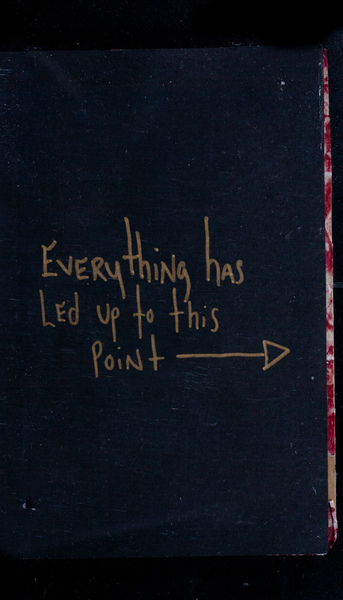 Everything has
Led up to this
point